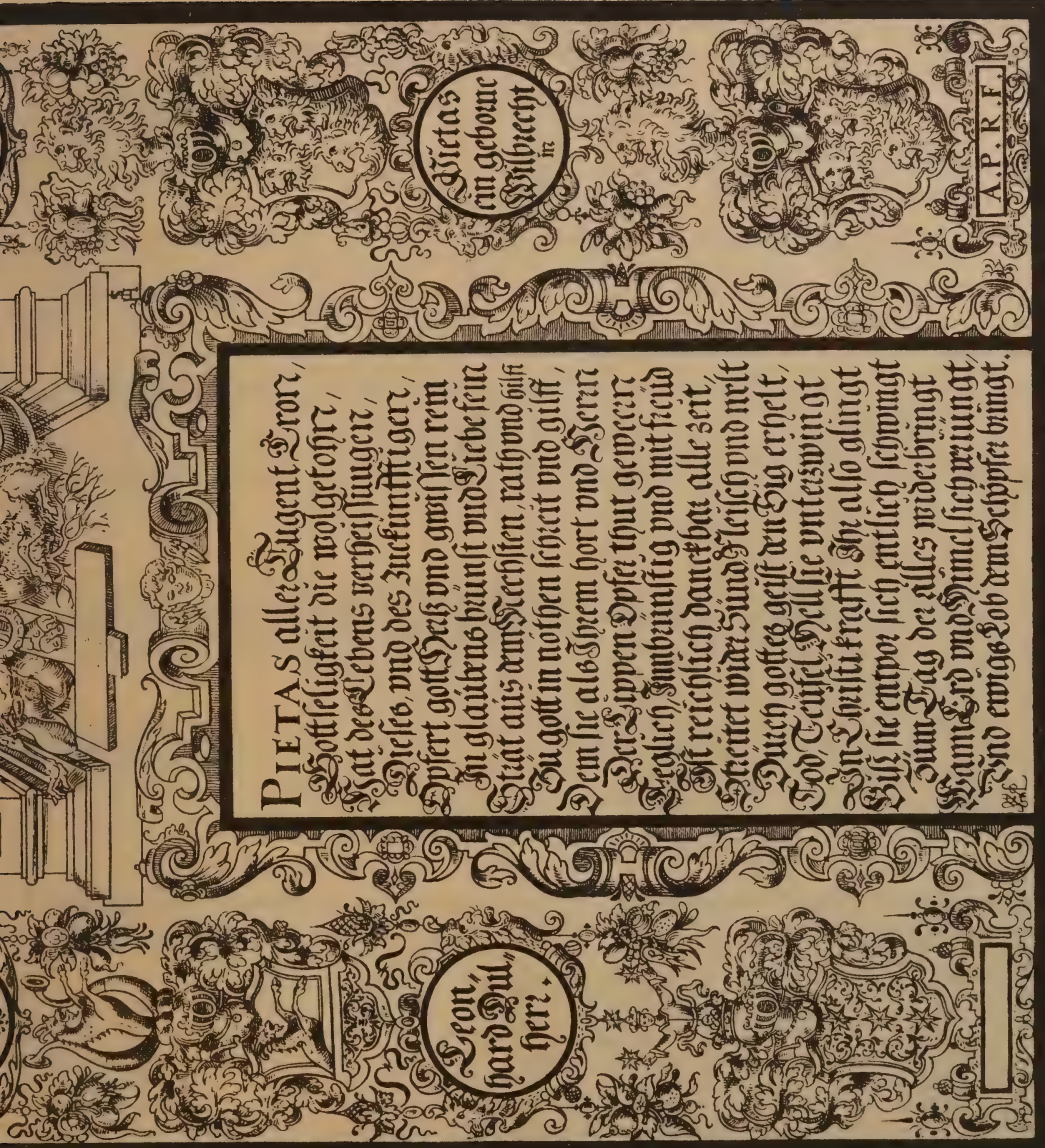 Leon,
hard Dil,
herr.
PIETAS aller Tugent Cron,
Gottseligkeit die wolgetohn,
Hat des Lebens verheissungen,
Dieses, vnd des zuckünfftigen,
Opfert gott Hertz vnd gwissen rein
In glaubens brünst vnd Liebe fein
Stät aus dem Nechsten, rath vnd hilft
Zu gott in nöthen schreit vnd gilff,
Dem sie als Ihrem hort vnd Herrn
Der Lippen Opffer thut gewern
Frolich, Innbrünstig vnd mit freud
Ist reichlich danckbar alle zeit,
Streitet wider Sünd Fleisch vnd welt
Durch gottes geist den Sig erhelt,
Tod Teüfel Hell sie vnterzwingt
In Christi krafft Ihr also glingt
Biß sie empor sich entlich schwingt
Zum Tag der alles widerbringt
Wann Erd vnd Himmel sich veriungt,
Vnd ewigs Lob dem Schöpfer bringt.
Pietas
ein geborne
Wilbrecht
in
A.P.R.F